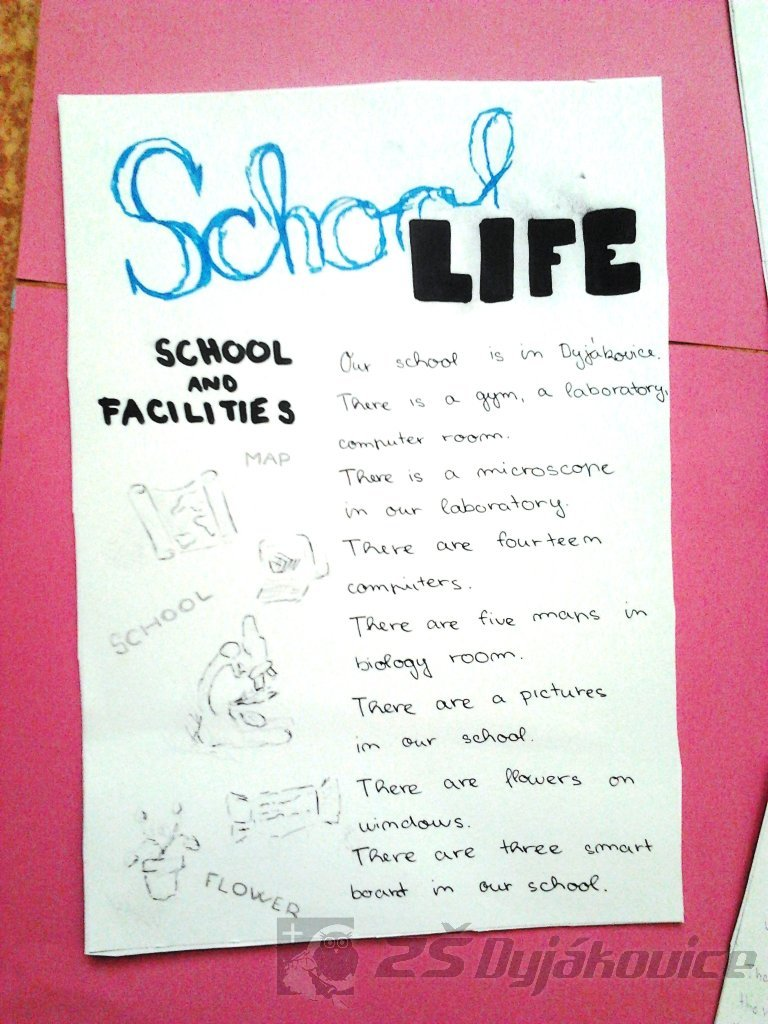 School
LIFE
SCHOOL
AND
FACILITIES
MAP
SCHOOL
FLOWER
Our school is in Dyjákovice.
There is a gym, a laboratory,
computer room.
There is a microscope
in our laboratory.
There are fourteem
computers.
There are five maps in
biology room.
There are a pictures
in our school.
There are flowers on
windows.
There are three smart
board in our school.
ZŠ Dyjákovice